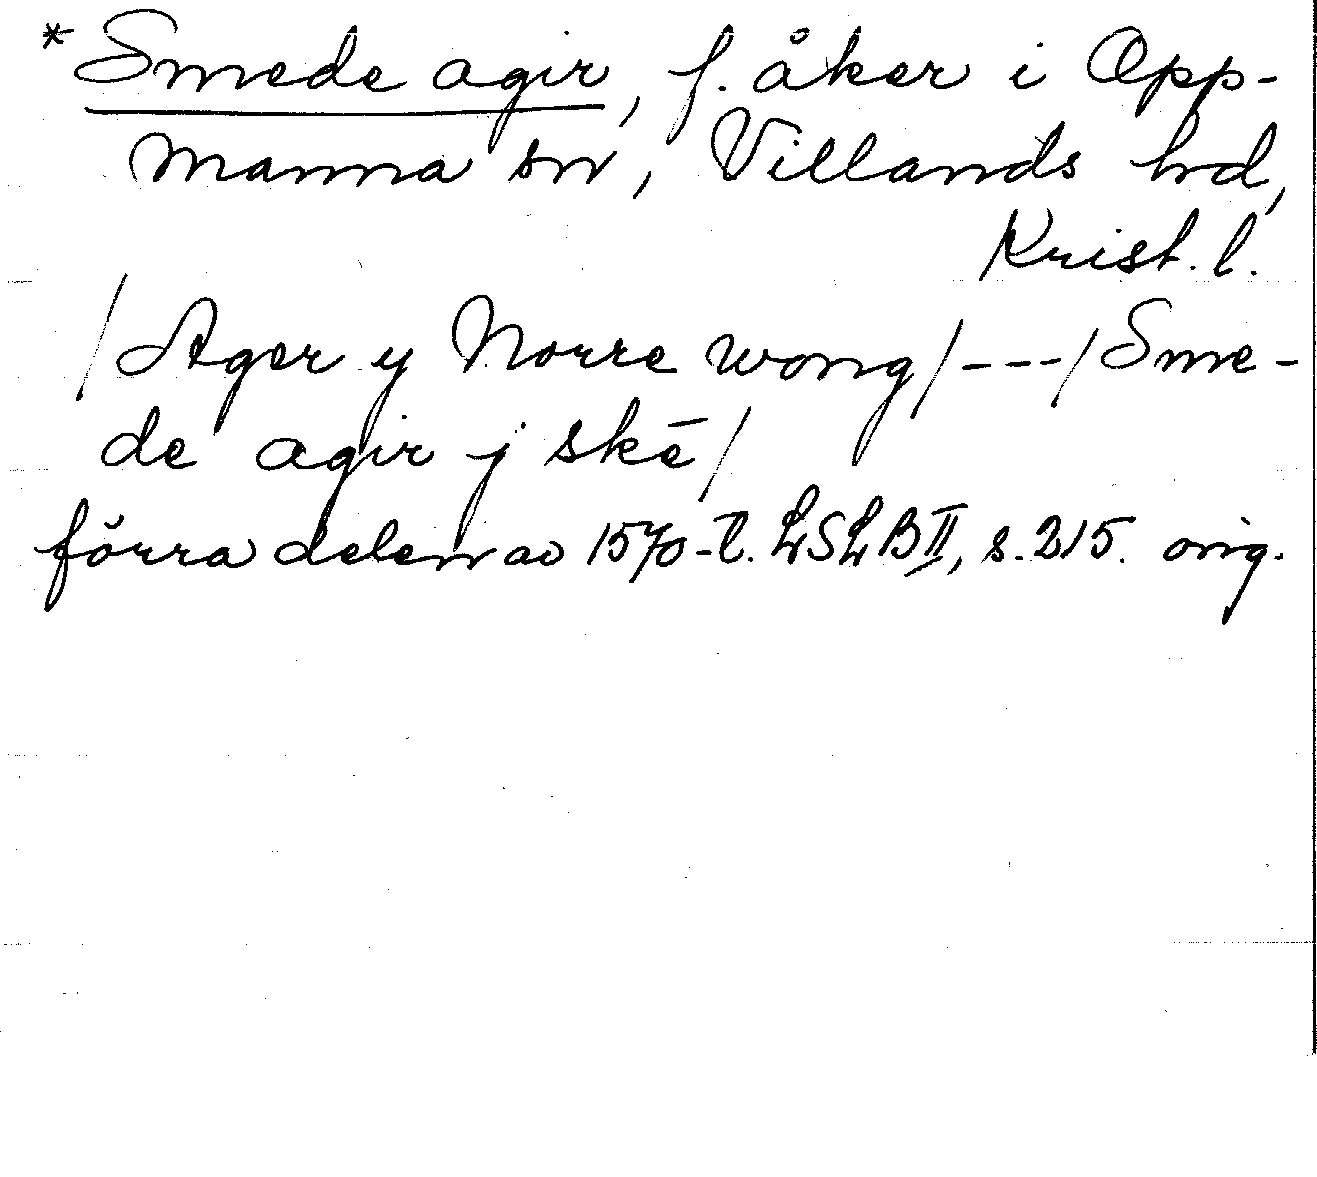 * Smede agir, f. åker i Opp-
manna sn, Villands hd,
Krist. l.
/Ager y Norre wong/---/Sme-
de agir j skē/
förra delen av 1570-t. LSLB II, s. 215. orig.